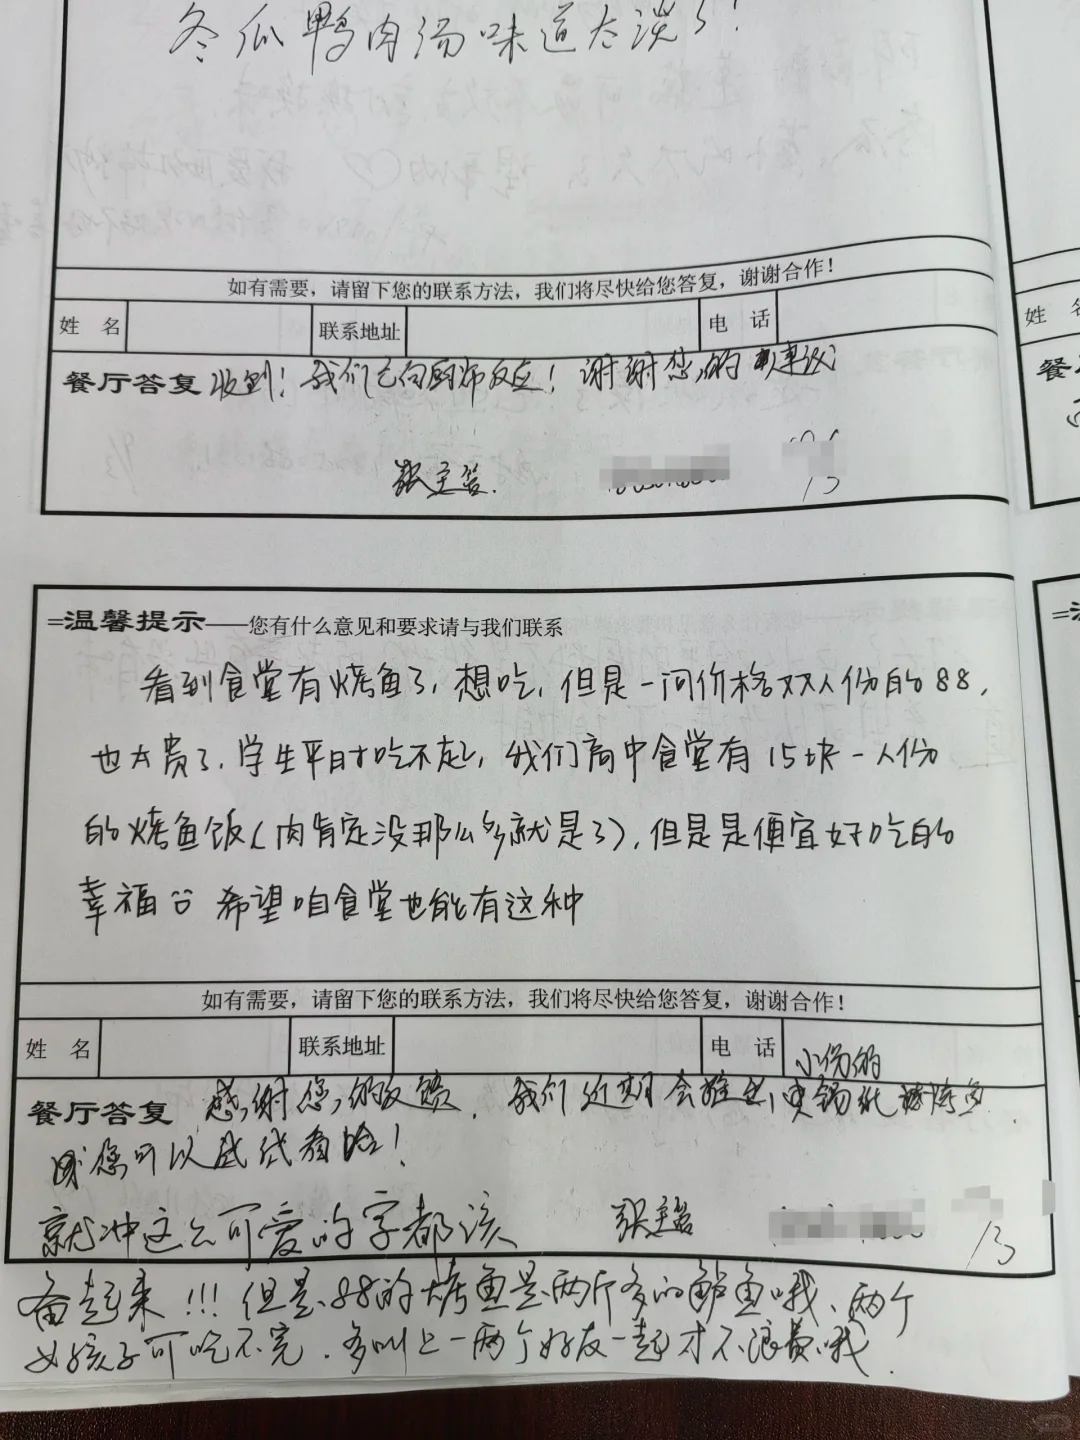 冬瓜鸭肉汤味道太淡了！
如有需要，请留下您的联系方法，我们将尽快给您答复，谢谢合作！
姓 名 联系地址 电 话
餐厅答复 收到！我们已向厨师反应！谢谢您的
张主管.
=温馨提示——您有什么意见和要求请与我们联系
看到食堂有烤鱼了，想吃，但是一问价格双人份的88，
也太贵了，学生平时吃不起，我们高中食堂有15块一人份
的烤鱼饭（肉肯定没那么多就是了），但是是便宜好吃的
幸福 希望咱食堂也能有这种
如有需要，请留下您的联系方法，我们将尽快给您答复，谢谢合作！
姓 名 联系地址 电 话 小份的
餐厅答复 感谢您的反馈，我们近期会推出
您可以试试看哈！
就冲这么可爱的字都该 张主管
奋起来！！！但是88的烤鱼是两斤多的鲈鱼哦、两个
女孩子可吃不完。多叫上一两个好友一起才不浪费哦.